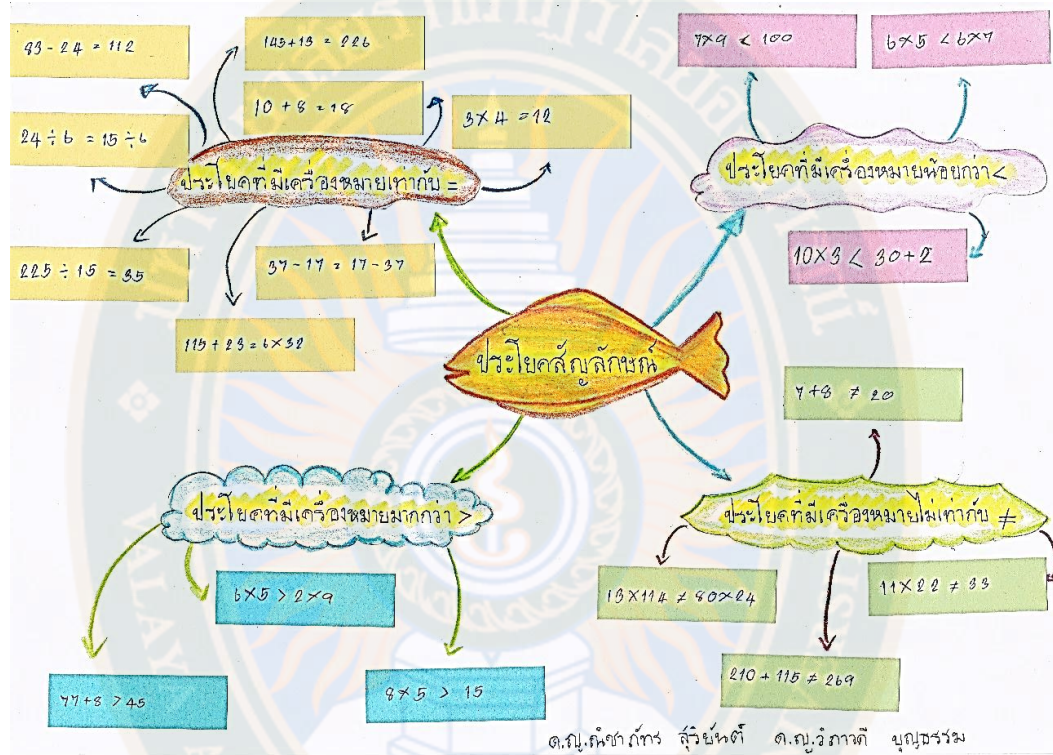 83 - 24 = 112
145+13 = 226
10 + 8 = 18
3 × 4 = 12
24 ÷ 6 = 15 ÷ 6
ประโยคที่มีเครื่องหมายเท่ากับ =
225 ÷ 15 = 35
37 - 17 = 17 - 37
115 + 23 = 6 × 32
7×9 < 100
6×5 < 6×7
ประโยคที่มีเครื่องหมายน้อยกว่า <
10×3 < 30+2
ประโยคสัญลักษณ์
7+8 ≠ 20
ประโยคที่มีเครื่องหมายมากกว่า >
6×5 > 2×9
77+8 > 45
8×5 > 15
ประโยคที่มีเครื่องหมายไม่เท่ากับ ≠
13×114 ≠ 80×24
11×22 ≠ 33
210 + 115 ≠ 269
ด.ญ.ณิชาภัทร สุริยันต์ ด.ญ.วิภาวดี บุญธรรม